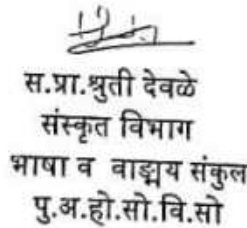 स.प्रा.श्रुती देवळे
संस्कृत विभाग
भाषा व वाङ्मय संकुल
पु.अ.हो.सो.वि.सो